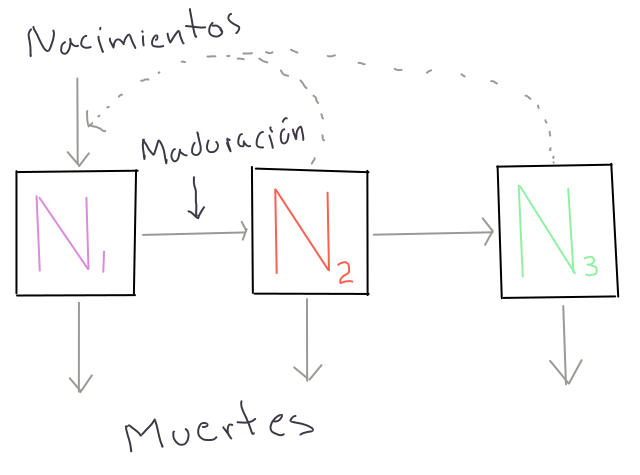 Nacimientos
Maduración
N1 N2 N3
Muertes